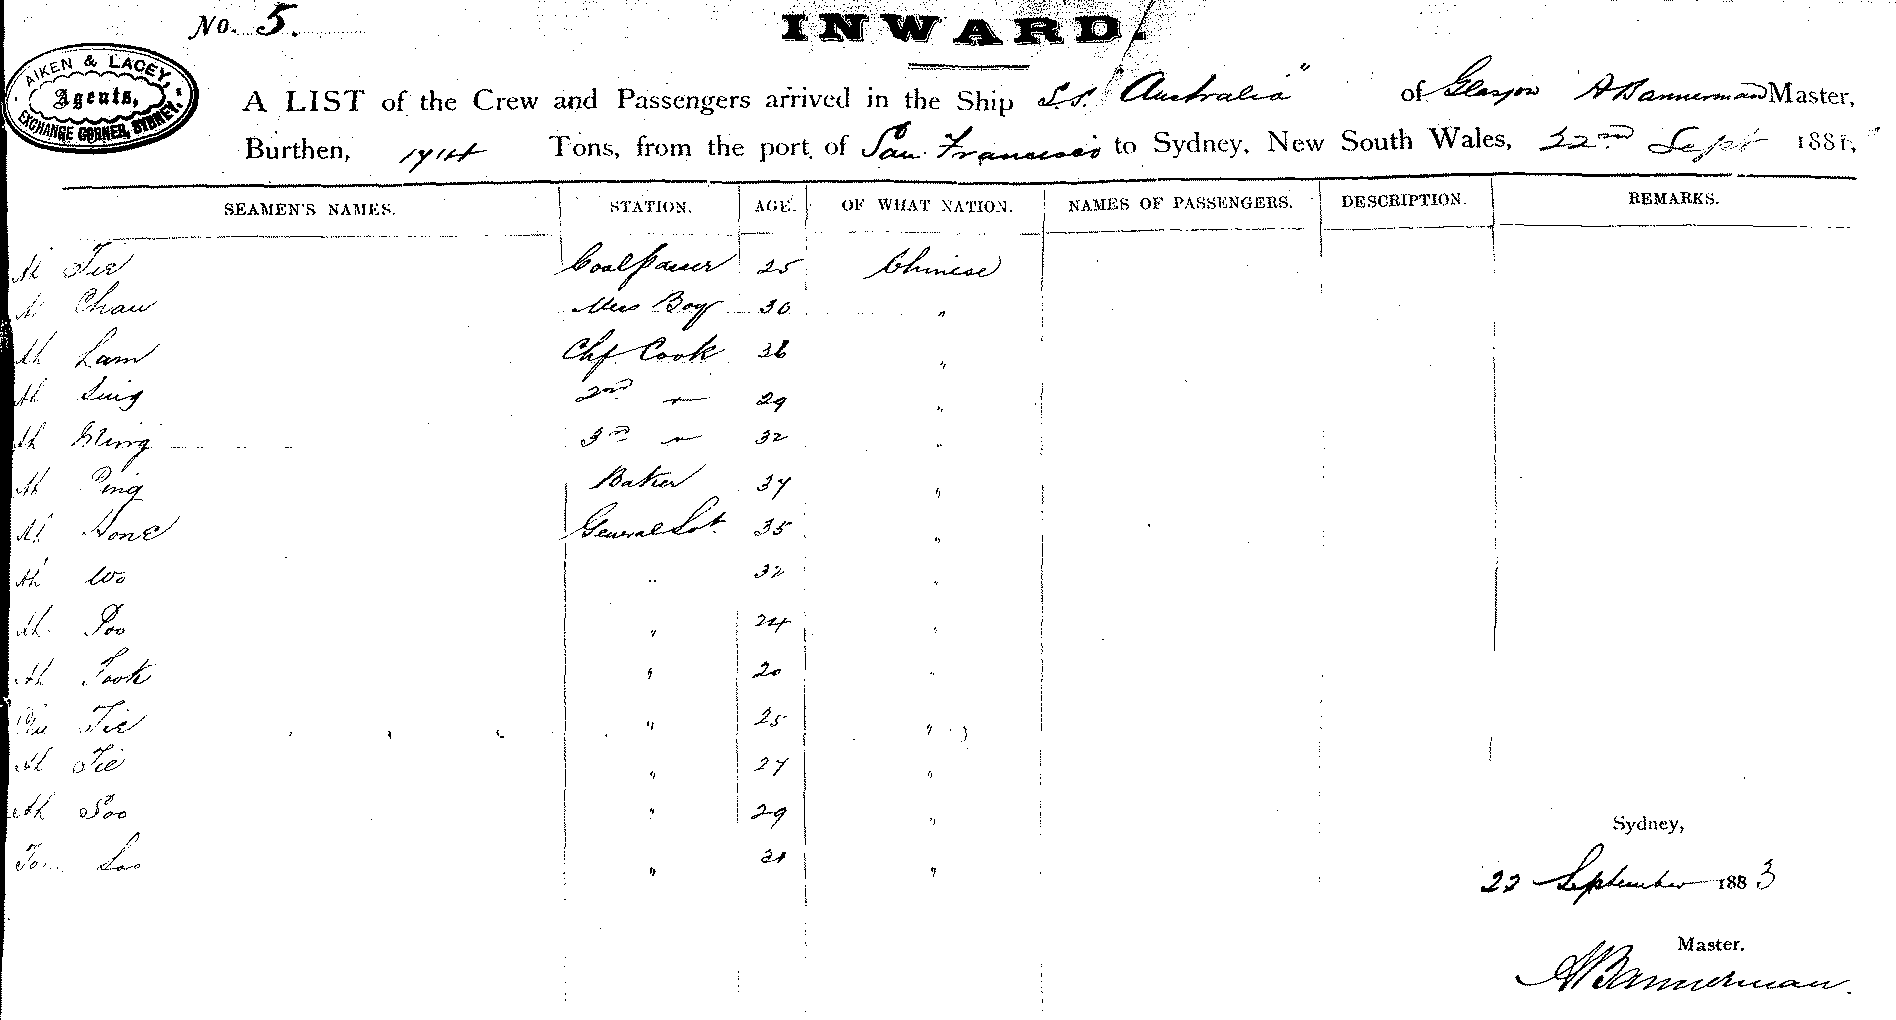 No. 5.
INWARD.
AIKEN & LACEY,
Agents,
EXCHANGE CORNER, SYDNEY.
A LIST of the Crew and Passengers arrived in the Ship S.S. "Australia" of Glasgow A Bannerman Master,
Burthen, 1714 Tons, from the port of San Francisco to Sydney, New South Wales, 22nd Sept 188
SEAMEN'S NAMES. STATION. AGE. OF WHAT NATION. NAMES OF PASSENGERS. DESCRIPTION. REMARKS.
Ah Tie Coalpasser 25 Chinese
Ah Chau Mess Boy 30 "
Ah Lam Chf Cook 36 "
Ah Sing 2nd " 29 "
Ah 3rd " 32 "
Ah Ping Baker 37 "
Ah General 35 "
Ah Wo " 32 "
Ah Poo " 24 "
Ah Took " 20 "
Tie " 25 "
Ah Tie " 27 "
Ah Poo " 29 "
Loo " "
Sydney,
22 September 1883
Master.
A Bannerman